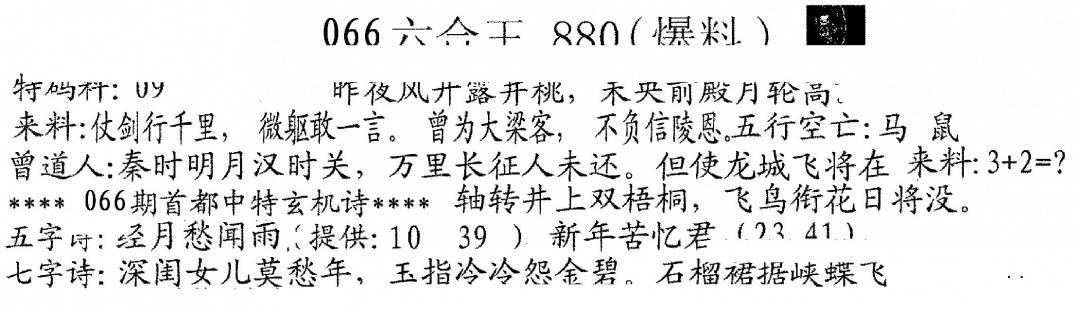 066六合王 880(爆料)
特码料: 09 昨夜风开露井桃，未央前殿月轮高.
来料:仗剑行千里，微躯敢一言。曾为大梁客，不负信陵恩。五行空亡:马 鼠
曾道人:秦时明月汉时关，万里长征人未还。但使龙城飞将在 来料:3+2=?
**** 066期首都中特玄机诗**** 轴转井上双梧桐，飞鸟衔花日将没。
五字诗: 经月愁闻雨,(提供: 10 39 ) 新年苦忆君 (23. 41).
七字诗: 深闺女儿莫愁年，玉指冷冷怨金碧。石榴裙据峡蝶飞